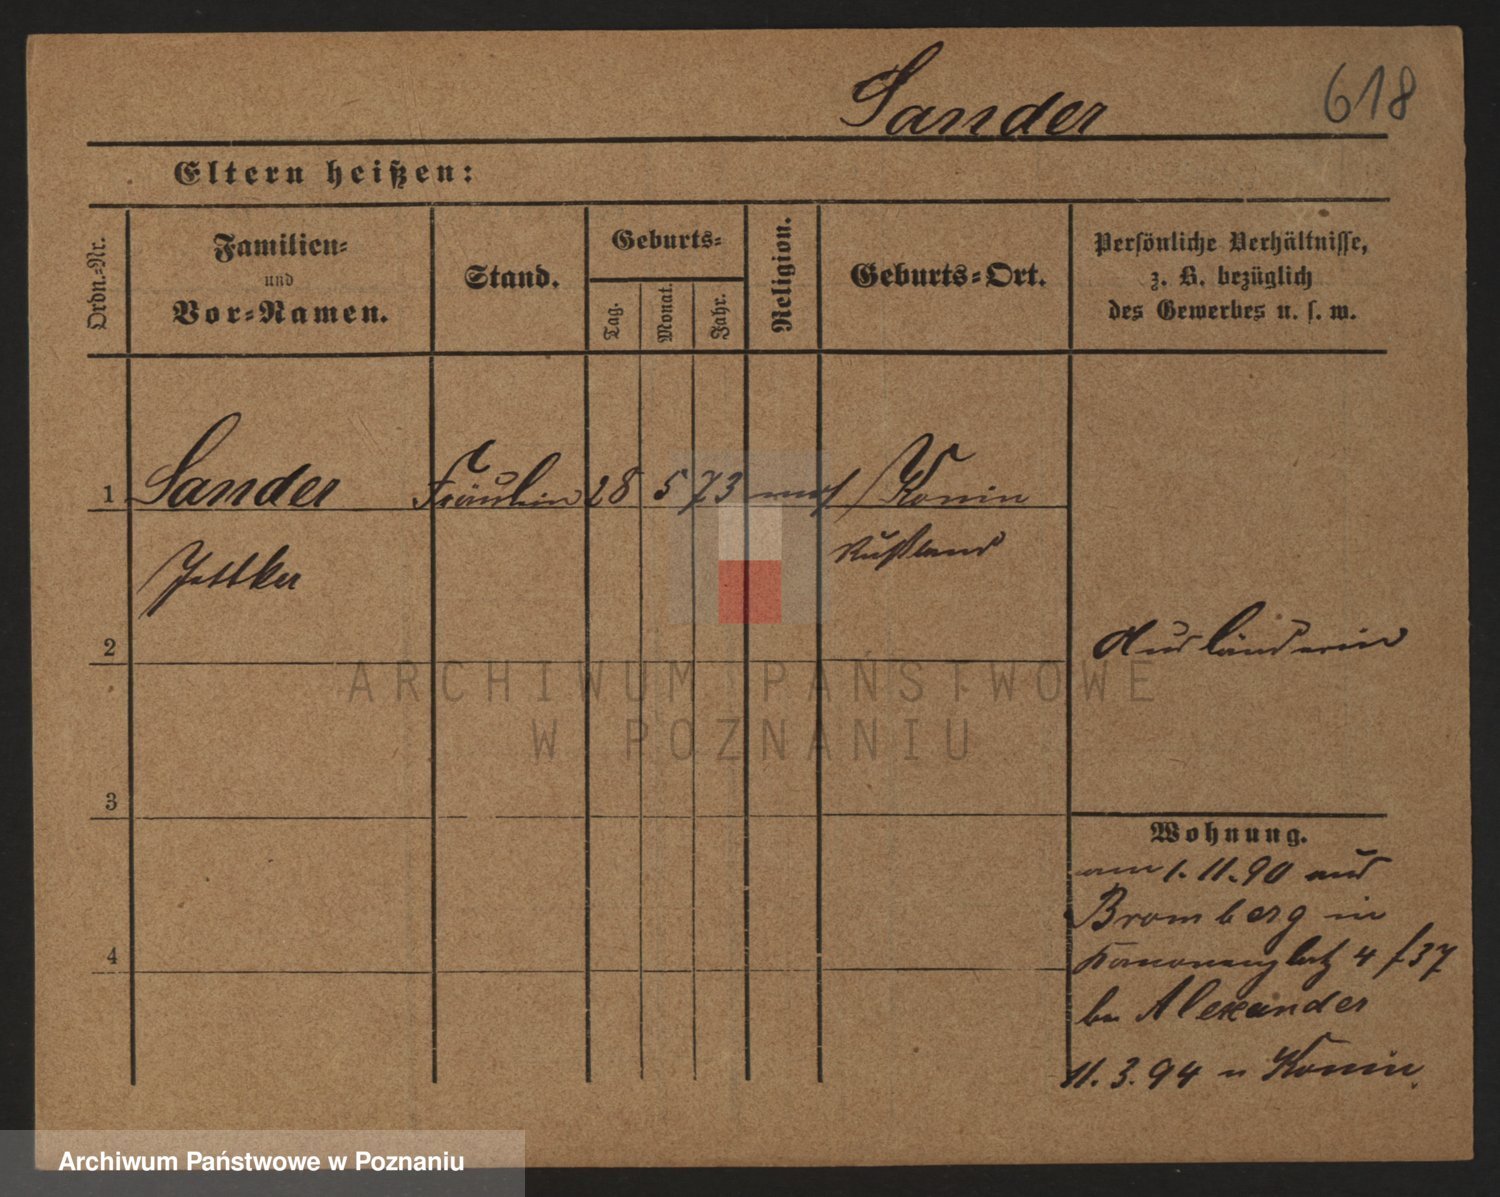 Sander
618
Eltern heißen:
Ordn.-Nr.
Familien-
und
Vor-Namen.
Stand.
Geburts-
Tag.
Monat.
Jahr.
Religion.
Geburts-Ort.
Persönliche Verhältnisse,
z. B. bezüglich
des Gewerbes u. s. w.
1 Sander Fräulein 28 5 73 mos Konin
Rußland
2
Ausländerin
ARCHIWUM PAŃSTWOWE
W POZNANIU
3
Wohnung.
am 1.11.90 aus
Bromberg in
Kanonenplatz 4 f 37
4
bei Alexander
11.3.94 n Konin
Archiwum Państwowe w Poznaniu